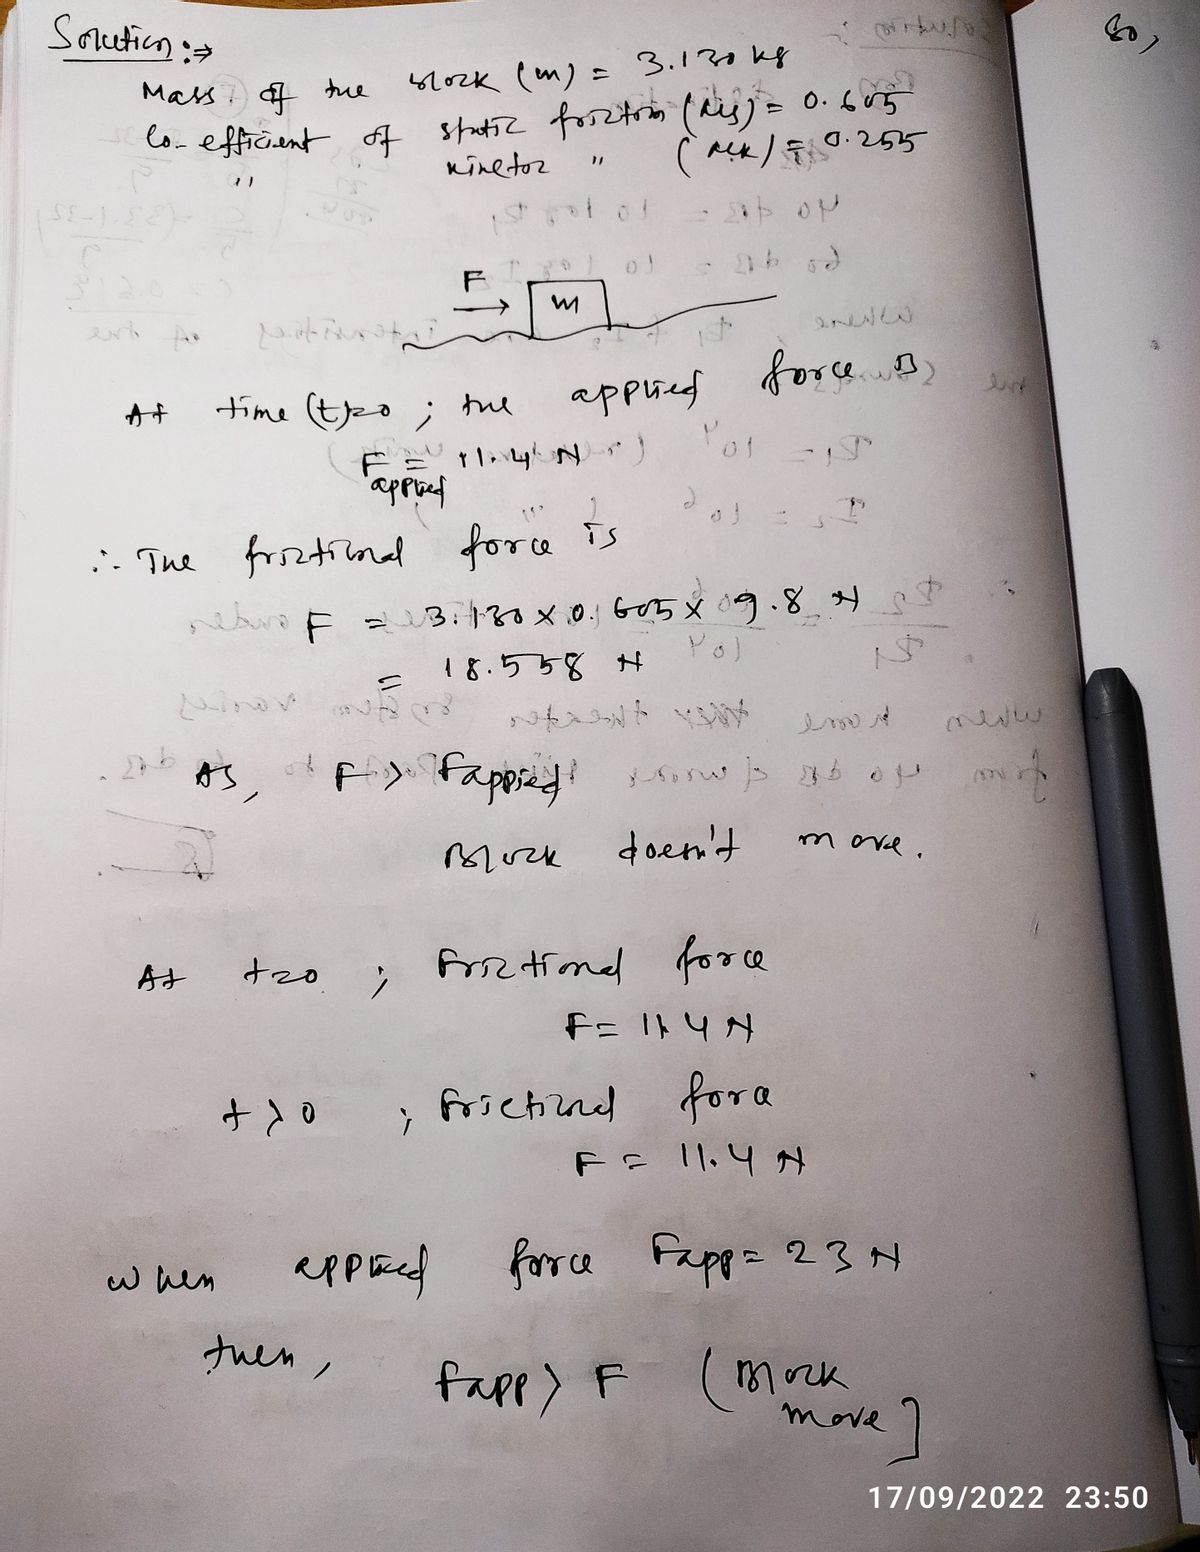 Solution :⇒
80,
Mass of the block (m) = 3.130 kg
Co-efficient of static friction (μs) = 0.605
" kinetic " (μk) = 0.255
F
m
At time (t)=0 ; the applied force is
F applied = 11.4 N
∴ The frictional force is
F = 3.130 x 0.605 x 9.8 N
= 18.558 N
As, F > Fapplied
Block doesn't move.
At t=0 ; Frictional force
F = 11.4 N
t > 0 ; Frictional force
F = 11.4 N
When applied force Fapp = 23 N
then, Fapp > F (Block
move]
17/09/2022 23:50